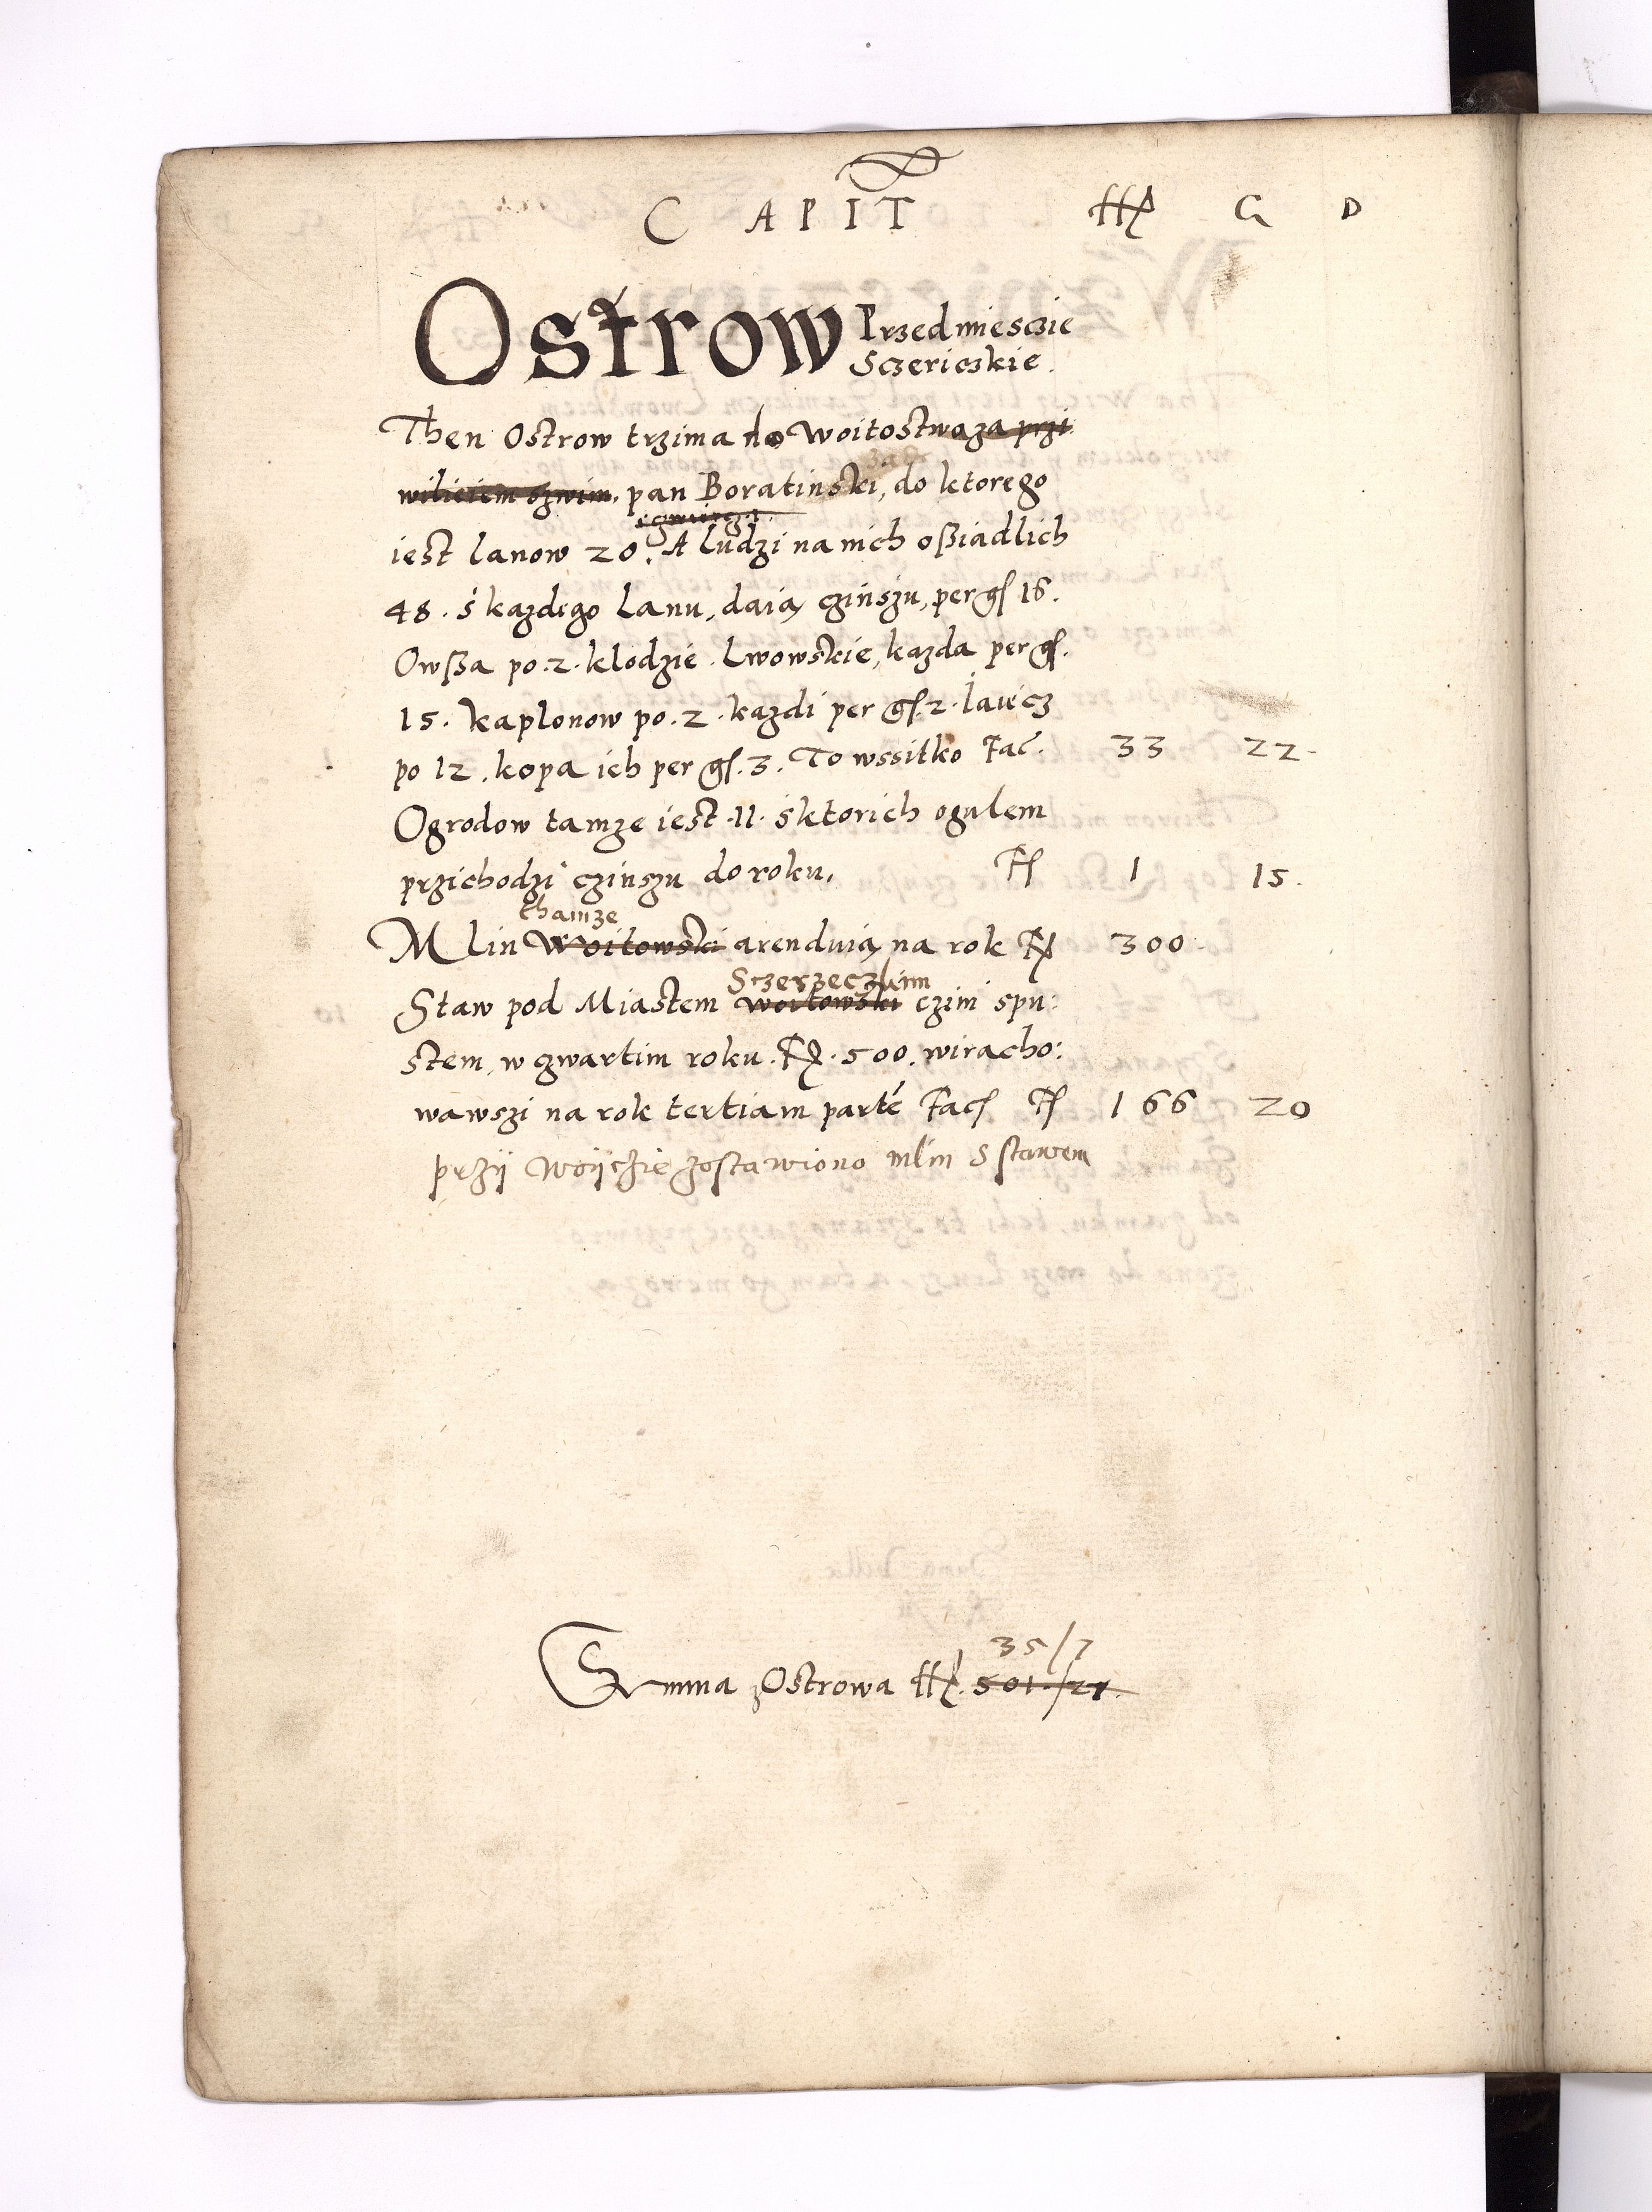 CAPIT fl G D
Ostrow Przedmiesczie
Sczericzkie.
Then Ostrow trzima do Woitostwa za przi
wilieiem szwim. pan Boratinski, do ktorego
iest lanow 20. A ludzi na nich oßiadlich
48. s kazdego Lanu, daią czinszu, per gſ 18.
Owßa po. 2. klodzie. Lwowskie, kazda per gſ.
15. kaplonow po. 2. kazdi per gſ. 2. Iaiecz
po 12. kopa ich per gſ. 3. To wssitko Fac. 33 22
Ogrodow tamze iest. 11. s ktorich ogulem
przichodzi czinszu do roku, fl 1 15.
thamze
Mlin Woitowski arenduią na rok fl 300.
Sczerzeczkim
Staw pod Miastem woitowski czini spu:
stem, w czwartim roku. fl. 500. wiracho:
wawszi na rok tertiam parte Facſ fl 166 20
przÿ Woÿczie zostawiono mlin s stawem
35/7
Summa Ostrowa fl. 501./27.